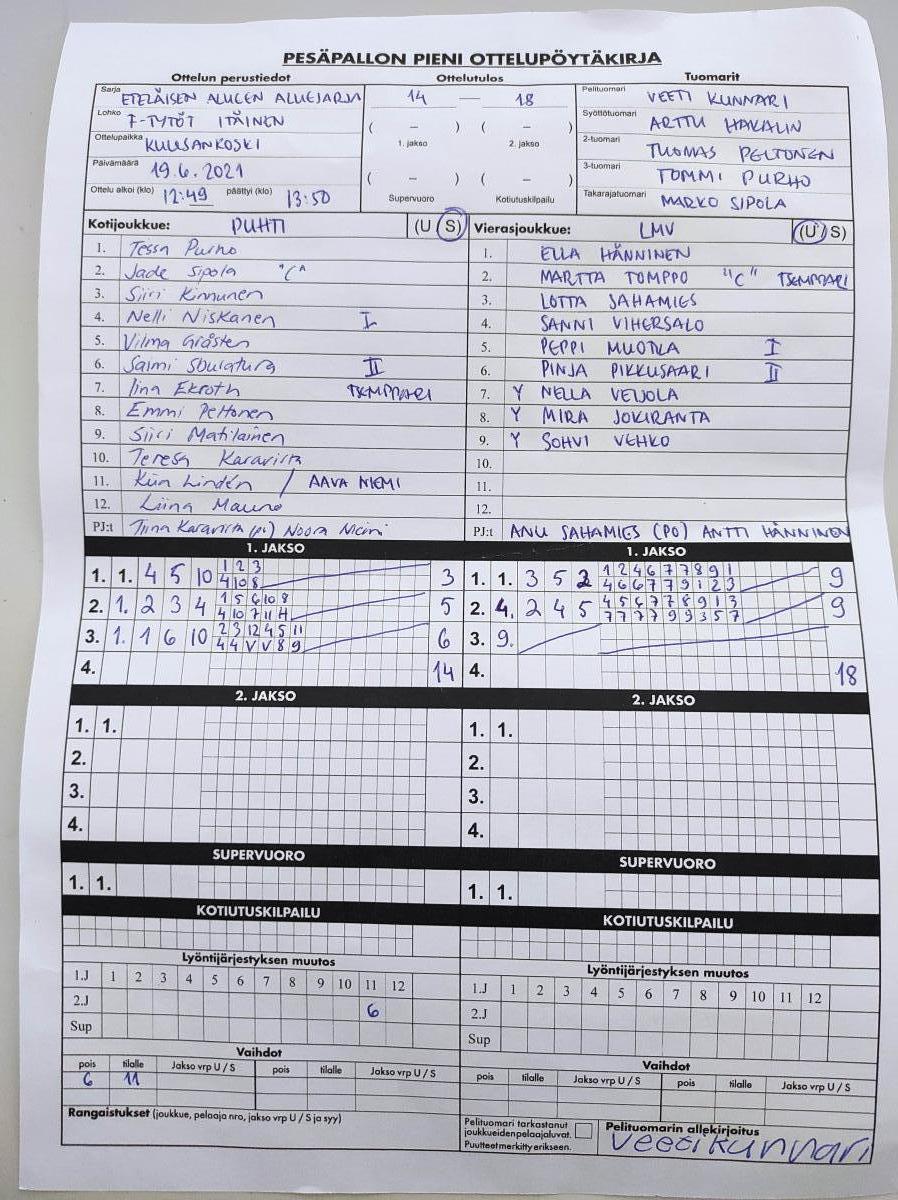 PESÄPALLON PIENI OTTELUPÖYTÄKIRJA
Ottelun perustiedot Ottelutulos Tuomarit
Sarja ETELÄISEN ALUEEN ALUESARJA 14 — 18 Pelituomari VEETI KUNNARI
Lohko F-TYTÖT ITÄINEN ( – ) ( – ) Syöttötuomari ARTTU HAKALIN
Ottelupaikka KUUSANKOSKI 1. jakso 2. jakso 2-tuomari TUOMAS PELTONEN
Päivämäärä 19.6.2021 ( – ) ( – ) 3-tuomari TOMMI PURHO
Ottelu alkoi (klo) 12:49 päättyi (klo) 13:50 Supervuoro Kotiutuskilpailu Takarajatuomari MARKO SIPOLA
Kotijoukkue: PUHTI (U S)
1. Tessa Purho
2. Jade Sipola "C"
3. Siiri Kinnunen
4. Nelli Niskanen I
5. Vilma Gråsten
6. Saimi Sburatura II
7. Iina Ekroth TSEMPPARI
8. Emmi Peltonen
9. Siiri Matilainen
10. Teresa Karavirta
11. Lindén / AAVA NIEMI
12. Liina Mauno
PJ:t Tiina Karavirta (pj) Noora
Vierasjoukkue: LMV (U S)
1. ELLA HÄNNINEN
2. MARTTA TOMPPO "C" TSEMPPARI
3. LOTTA SAHAMIES
4. SANNI VIHERSALO
5. PEPPI MUOTILA I
6. PINJA PIKKUSAARI II
7. Y NELLA VEIJOLA
8. Y MIRA JOKIRANTA
9. Y SOHVI VEHKO
10.
11.
12.
PJ:t ANU SAHAMIES (PO) ANTTI HÄNNINEN
1. JAKSO
1. 1. 4 5 10 1 2 3 3
4 10 8
2. 1. 2 3 4 1 5 6 10 8 5
4 10 7 11 4
3. 1. 1 6 10 2 3 12 4 5 11 6
4 4 V V 8 9
4. 14
1. JAKSO
1. 1. 3 5 2 1 2 4 6 7 7 8 9 1 9
4 6 6 7 7 9 1 2 3
2. 4. 2 4 5 4 5 6 7 7 8 9 1 3 9
7 7 7 9 9 3 5 7
3. 9.
4. 18
2. JAKSO
1. 1.
2.
3.
4.
2. JAKSO
1. 1.
2.
3.
4.
SUPERVUORO
1. 1.
SUPERVUORO
1. 1.
KOTIUTUSKILPAILU
KOTIUTUSKILPAILU
Lyöntijärjestyksen muutos
1.J 1 2 3 4 5 6 7 8 9 10 11 12
2.J 6
Sup
Lyöntijärjestyksen muutos
1.J 1 2 3 4 5 6 7 8 9 10 11 12
2.J
Sup
Vaihdot
pois tilalle Jakso vrp U / S pois tilalle Jakso vrp U / S
6 11
Vaihdot
pois tilalle Jakso vrp U / S pois tilalle Jakso vrp U / S
Rangaistukset (joukkue, pelaaja nro, jakso vrp U / S ja syy)
Pelituomari tarkastanut
joukkueiden pelaajaluvat.
Puutteet merkitty erikseen.
Pelituomarin allekirjoitus
Veeti Kunnari